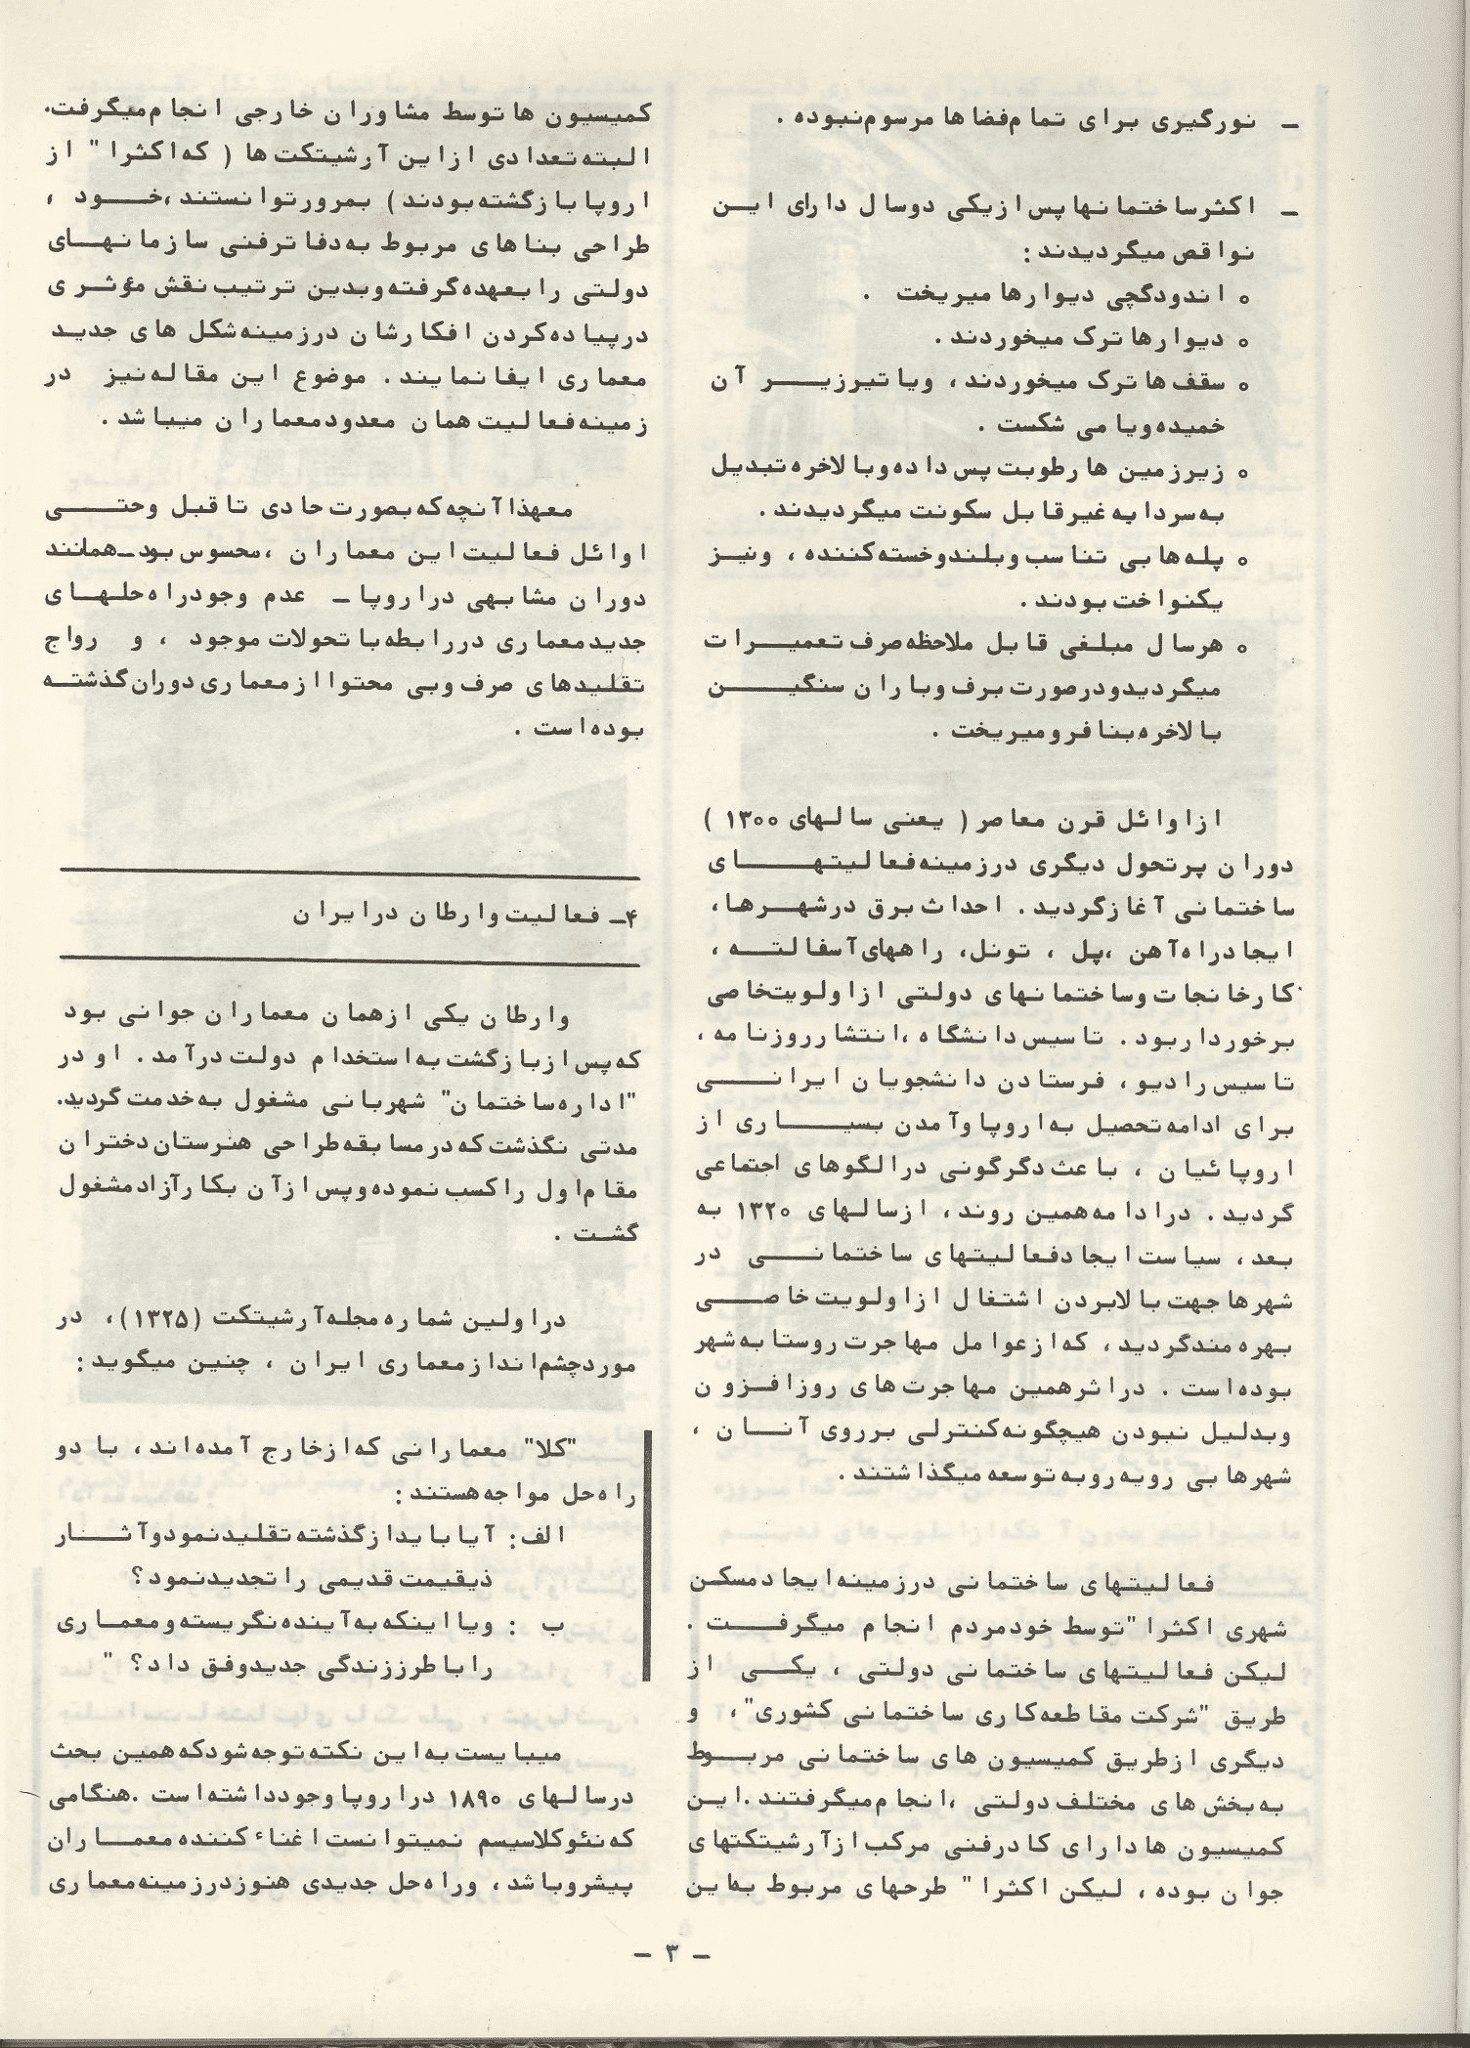 ـ نورگیری برای تمام‌فضاها مرسوم‌نبوده .
ـ اکثرساختمانهاپس‌ازیکی دوسال دارای ایـن
نواقص میگردیدند:
o اندودگچی دیوارها میریخت .
o دیوارها ترک میخوردند .
o سقف‌ها ترک میخوردند، ویاتیرزیـــر آن
خمیده‌ویا می شکست .
o زیرزمین ها رطوبت پس داده‌وبالاخره‌تبدیل
به‌سردابه‌غیرقابل سکونت میگردیدند .
o پله‌هابی تناسب وبلندوخسته‌کننده ، ونیـز
یکنواخت بودند .
o هرسال مبلغی قابل ملاحظه‌صرف تعمیـرات
میگردیدودرصورت برف وباران سنگیــــن
بالاخره‌بنا فرومیریخت .
ازاوائل قرن معاصر ( یعنی سالهای ۱۳۰۰ )
دوران پرتحول دیگری درزمینه‌فعالیتهـــای
ساختمانی آغازگردید . احداث برق درشهـرها،
ایجادراه‌آهن ،پل ، تونل، راههای‌آسفالتـه ،
کارخانجات وساختمانهای دولتی ازاولویت‌خاصی
برخورداربود . تاسیس دانشگاه ،انتشارروزنامه ،
تاسیس رادیو ، فرستادن دانشجویان ایرانـــی
برای ادامه‌تحصیل به‌اروپاوآمدن بسیـــاری از
اروپائیان ، باعث دگرگونی درالگوهای اجتماعی
گردید . درادامه‌همین روند، ازسالهای ۱۳۲۰ به
بعد ، سیاست ایجادفعالیتهای ساختمانـــی در
شهرهاجهت بالابردن اشتغال ازاولویت خاصــی
بهره‌مندگردید ، که‌ازعوامل مهاجرت روستا به‌شهر
بوده‌است . دراثرهمین مهاجرت‌های روزافـزون
وبدلیل نبودن هیچگونه‌کنترلی برروی آنـــان ،
شهرهابی رویه‌روبه‌توسعه میگذاشتند .
فعالیتهای ساختمانی درزمینه‌ایجادمسکن
شهری اکثرا "توسط خودمردم انجام میگرفــت .
لیکن فعالیتهای ساختمانی دولتی ، یکـــی از
طریق "شرکت مقاطعه‌کاری ساختمانی کشوری"، و
دیگری ازطریق کمیسیون های ساختمانی مربـوط
به‌بخش های مختلف دولتی ،انجام‌میگرفتند .ایـن
کمیسیون هادارای کادرفنی مرکب ازآرشیتکتهای
جوان بوده ، لیکن اکثرا " طرحهای مربوط به‌این
کمیسیون هاتوسط مشاوران خارجی انجام‌میگرفت.
البته‌تعدادی ازاین آرشیتکت ها ( که‌اکثرا " از
اروپابازگشته‌بودند ) بمرورتوانستند ،خــود ،
طراحی بناهای مربوط به‌دفاترفنی سازمانهـای
دولتی رابعهده‌گرفته‌وبدین ترتیب نقش مؤثری
درپیاده‌کردن افکارشان درزمینه‌شکل های جدید
معماری ایفانمایند . موضوع این مقاله‌نیز در
زمینه‌فعالیت همان معدودمعماران میباشد .
معهذاآنچه‌که‌بصورت حادی تاقبل وحتـــی
اوائل فعالیت‌این معماران ،محسوس بود ـ همانند
دوران مشابهی دراروپا ـ عدم وجودراه‌حلهـای
جدیدمعماری دررابطه‌باتحولات موجود ، و رواج
تقلیدهای صرف وبی محتوا ازمعماری دوران‌گذشتـه
بوده‌است .
۴ـ فعالیت وارطان درایران
وارطان یکی ازهمان معماران جوانی بود
که‌پس ازبازگشت به‌استخدام دولت درآمد . او در
"اداره‌ساختمان" شهربانی مشغول به‌خدمت گردید.
مدتی نگذشت که‌درمسابقه‌طراحی هنرستان‌دختران
مقام‌اول راکسب نموده‌وپس ازآن بکارآزادمشغول
گشـت .
دراولین شماره‌مجله‌آرشیتکت (۱۳۲۵) ، در
موردچشم‌اندازمعماری ایران ، چنین میگوید :
"کلا" معمارانی که‌ازخارج آمده‌اند ، بادو
راه‌حل مواجه‌هستند :
الف : آیابایدازگذشته‌تقلیدنمودوآثـــار
ذیقیمت قدیمی راتجدیدنمود؟
ب : ویااینکه‌به‌آینده‌نگریسته‌ومعمـاری
راباطرززندگی جدیدوفق داد؟ "
میبایست به‌این نکته‌توجه‌شودکه‌همین بحث
درسالهای ۱۸۹۰ دراروپاوجودداشته‌است .هنگامی
که‌نئوکلاسیسم نمیتوانست اغناء کننده‌معمـاران
پیشروباشد ، وراه‌حل جدیدی هنوزدرزمینه‌معماری
ـ ۳ ـ